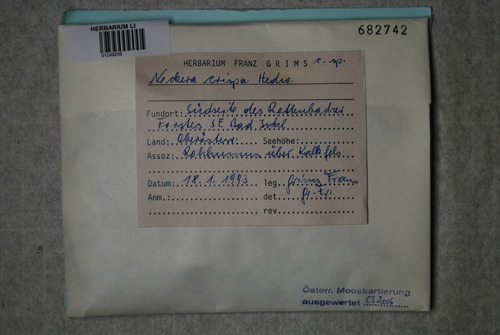 HERBARIUM LI
682742
HERBARIUM FRANZ GRIMS c. sp.
Neckera crispa Hedw.
Fundort: Südseite des Rettenbacher
Forstes SE Bad Ischl
Land: Oberösterr. Seehöhe:
Assoz: Rohhumus über Kalkfels
Datum: 18.1.1993 leg. Grims Franz
Anm.: det. Gr. Fr.
rev.
Österr. Mooskartierung
ausgewertet